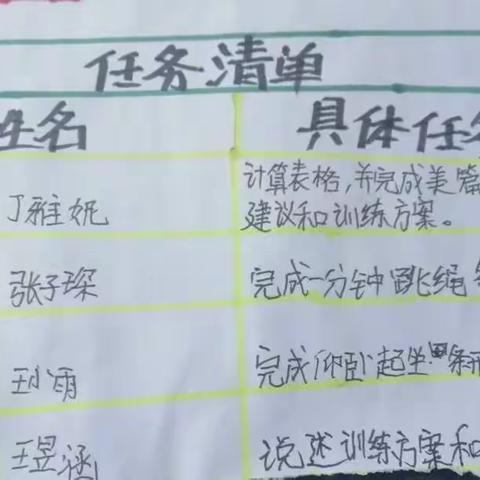 任务清单
姓名 具体任务
丁雅妮 计算表格,并完成美篇
建议和训练方案。
张子琛 完成一分钟跳绳
王小雨 完成仰卧起坐条形
王昱涵 说述训练方案和